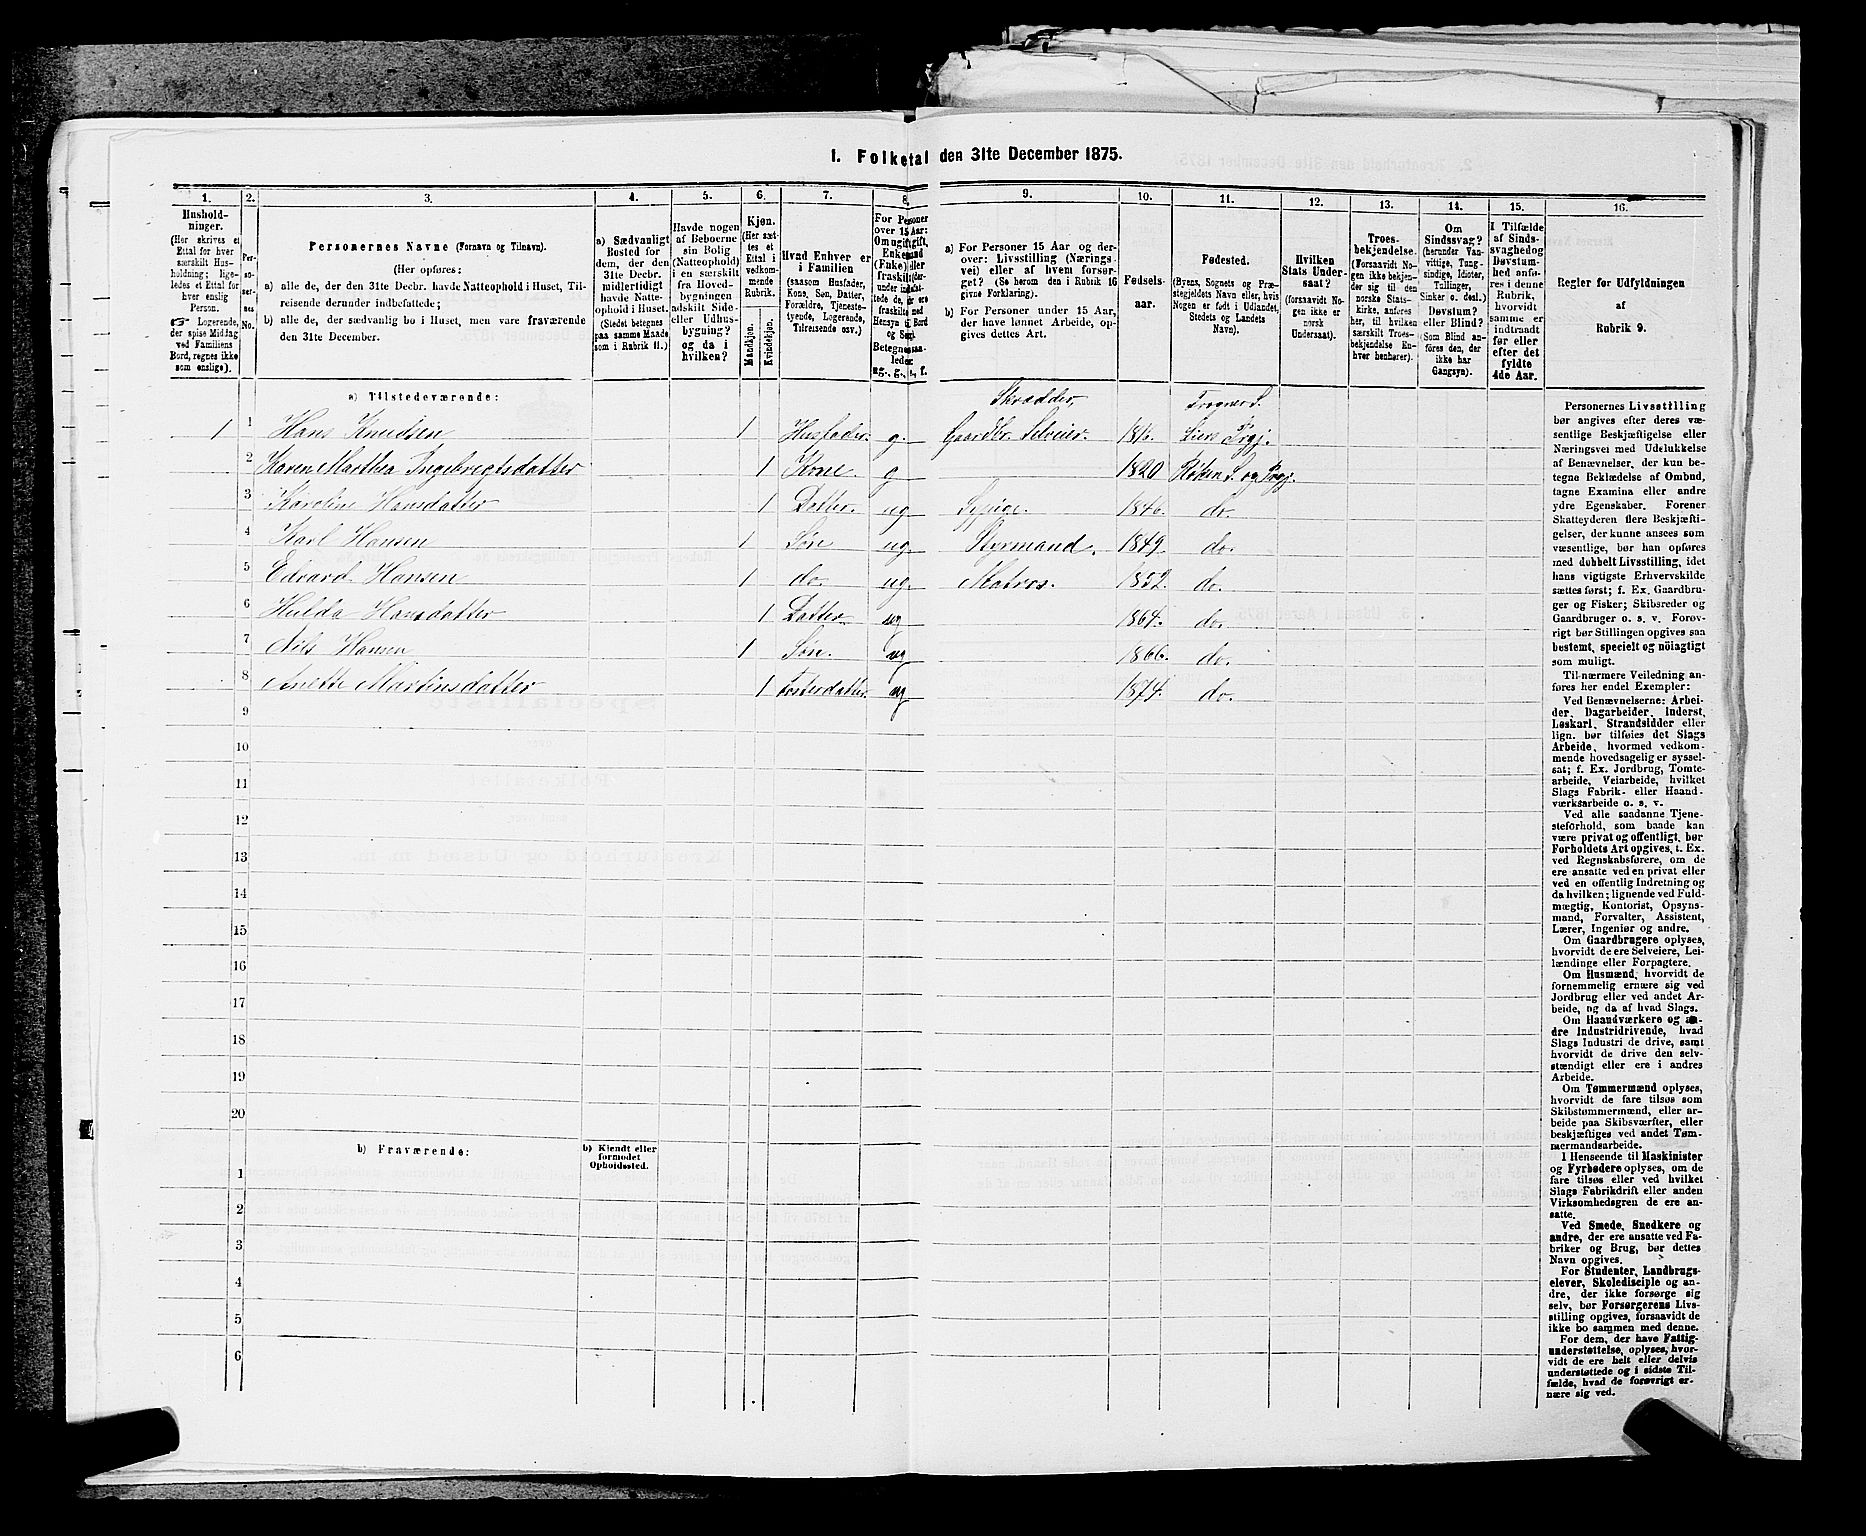 1. Folketal den 31te December 1875.
1. 2. 3. 4. 5. 6. 7. 8. 9. 10. 11. 12. 13. 14. 15. 16.
Hushold-
ninger.
(Her skrives et
Ettal for hver
særskilt Hus-
holdning; lige-
ledes et Ettal for
hver enslig
Person.
☞ Logerende,
der spise Middag
ved Familiens
Bord, regnes ikke
som enslige).
Per-
so-
ner-
nes
No.
Personernes Navne (Fornavn og Tilnavn).
(Her opføres:
a) alle de, der den 31te Decbr. havde Natteophold i Huset, Til-
reisende derunder indbefattede;
b) alle de, der sædvanlig bo i Huset, men vare fraværende
den 31te December.
a) Sædvanligt
Bosted for
dem, der den
31te Decbr.
midlertidigt
havde Natte-
ophold i Huset.
(Stedet betegnes
paa samme Maade
som i Rubrik 11.)
Havde nogen
af Beboerne
sin Bolig
(Natteophold)
i en særskilt
fra Hoved-
bygningen
adskilt Side-
eller Udhus-
bygning?
og da i
hvilken?
Kjøn.
(Her sæt-
tes et
Ettal i
vedkom-
mende
Rubrik.
Mandkjøn.
Kvindekjøn.
Hvad Enhver er
i Familien
(saasom Husfader,
Kone, Søn, Datter,
Forældre, Tjeneste-
tyende, Logerende,
Tilreisende osv.)
For Personer
over 15 Aar:
Om ugift, gift,
Betegnes saa-
ledes:
ug., g., e., f.
a) For Personer 15 Aar og der-
over: Livsstilling (Nærings-
vei) eller af hvem forsør-
get? (Se herom den i Rubrik 16
givne Forklaring).
b) For Personer under 15 Aar,
der have lønnet Arbeide, op-
gives dettes Art.
Fødsels-
aar.
Fødested.
(Byens, Sognets og Præ-
stegjeldets Navn eller, hvis
Nogen er født i Udlandet,
Stedets og Landets
Navn).
Hvilken
Stats Under-
saat?
(forsaavidt No-
gen ikke er
norsk
Undersaat).
Troes-
bekjendelse.
(Forsaavidt No-
gen ikke bekjen-
der sig til den
norske Stats-
kirke, anføres
her, til hvilken
særskilt Troes-
bekjendelse En-
hver henhører).
Om
Sindssvag?
(herunder Van-
vittige, Tung-
sindige, Idioter,
Tullinger,
Sinker o. desl.)
Døvstum?
eller Blind?
(Som Blind an-
føres den, der
ikke har
Gangsyn).
I Tilfælde
af Sinds-
svaghed og
Døvstum-
hed anfø-
res i denne
Rubrik,
hvorvidt
samme er
indtraadt
før eller
efter det
fyldte
4de Aar.
Regler for Udfyldningen
af
Rubrik 9.
a) Tilstedeværende:
Skrædder, Frogner S.
1 1 Hans Knudsen 1 Husfader. g. Gaardbr. Selveier. 1816. Liers Prgj.
2 Karen Marthea Ingebrigtsdatter 1 Kone g 1820 Røken S. og Prgj.
3 Karoline Hansdatter 1 Datter. ug Sypige. 1846. do.
4 Karl Hansen 1 Søn ug. Styrmand. 1849. do.
5 Edvard Hansen 1 do. ug. Matros. 1852. do.
6 Hulda Hansdatter 1 Datter. ug 1864. do.
7 Nils Hansen 1 Søn. ug 1866. do.
8 Anette Martinsdatter 1 Fosterdatter. ug 1874. do.
9
10
11
12
13
14
15
16
17
18
19
20
b) Fraværende:
b) Kjendt eller
formodet
Opholdssted.
1
2
3
4
5
6
Personernes Livsstilling
bør angives efter deres væ-
sentlige Beskjæftigelse eller
Næringsvei med Udelukkelse
af Benævnelser, der kun be-
tegne Beklædelse af Ombud,
tagne Examina eller andre
ydre Egenskaber. Forener
Skatteyderen flere Beskjæfti-
gelser, der kunne ansees som
væsentlige, bør han opføres
med dobbelt Livsstilling, idet
hans vigtigste Erhvervskilde
sættes først; f. Ex. Gaardbru-
ger og Fisker; Skibsreder og
Gaardbruger o. s. v. Forøv-
rigt bør Stillingen opgives saa
bestemt, specielt og nøiagtigt
som muligt.
Til nærmere Veiledning an-
føres her endel Exempler:
Ved Benævnelserne: Arbei-
der, Dagarbeider, Inderst,
Løskarl, Strandsidder eller
lign. bør tilføies det Slags
Arbeide, hvormed vedkom-
mende hovedsagelig er syssel-
sat; f. Ex. Jordbrug, Tomte-
arbeide, Veiarbeide, hvilket
Slags Fabrik- eller Haand-
værksarbeide o. s. v.
Ved alle saadanne Tjene-
steforhold, som baade kan
være privat og offentligt, bør
Forholdets Art opgives, t. Ex.
ved Regnskabsførere, om de
ere ansatte ved en privat eller
ved en offentlig Indretning og
da hvilken; lignende ved Fuld-
mægtig, Kontorist, Opsyns-
mand, Forvalter, Assistent,
Lærer, Ingeniør og andre.
Om Gaardbrugere oplyses,
hvorvidt de ere Selveiere, Lei-
lændinge eller Forpagtere.
Om Husmænd, hvorvidt de
fornemmelig ernære sig ved
Jordbrug eller ved andet Ar-
beide, og da af hvad Slags.
Om Haandværkere og an-
dre Industridrivende, hvad
Slags Industri de drive, samt
hvorvidt de drive den selv-
stændigt eller ere i andres
Arbeide.
Om Tømmermænd oplyses,
hvorvidt de fare tilsøs som
Skibstømmermænd, eller ar-
beide paa Skibsværfter, eller
beskjæftiges ved andet Tøm-
mermandsarbeide.
I Henseende til Maskinister
og Fyrbødere oplyses, om de
fare tilsøs eller ved hvilket
Slags Fabrikdrift eller anden
Virksomhedsgren de ere an-
satte.
Ved Smede, Snedkere og
andre, der ere ansatte ved Fa-
briker og Brug, bør dettes
Navn opgives.
For Studenter, Landbrugs-
elever, Skoledisciple og an-
dre, der ikke forsørge sig
selv, bør Forsørgerens Livs-
stilling opgives, forsaavidt de
ikke bo sammen med denne.
For dem, der have Fattig-
understøttelse, oplyses, hvor-
vidt de ere helt eller delvis
understøttede og i sidste Til-
fælde, hvad de forøvrigt er-
nære sig ved.